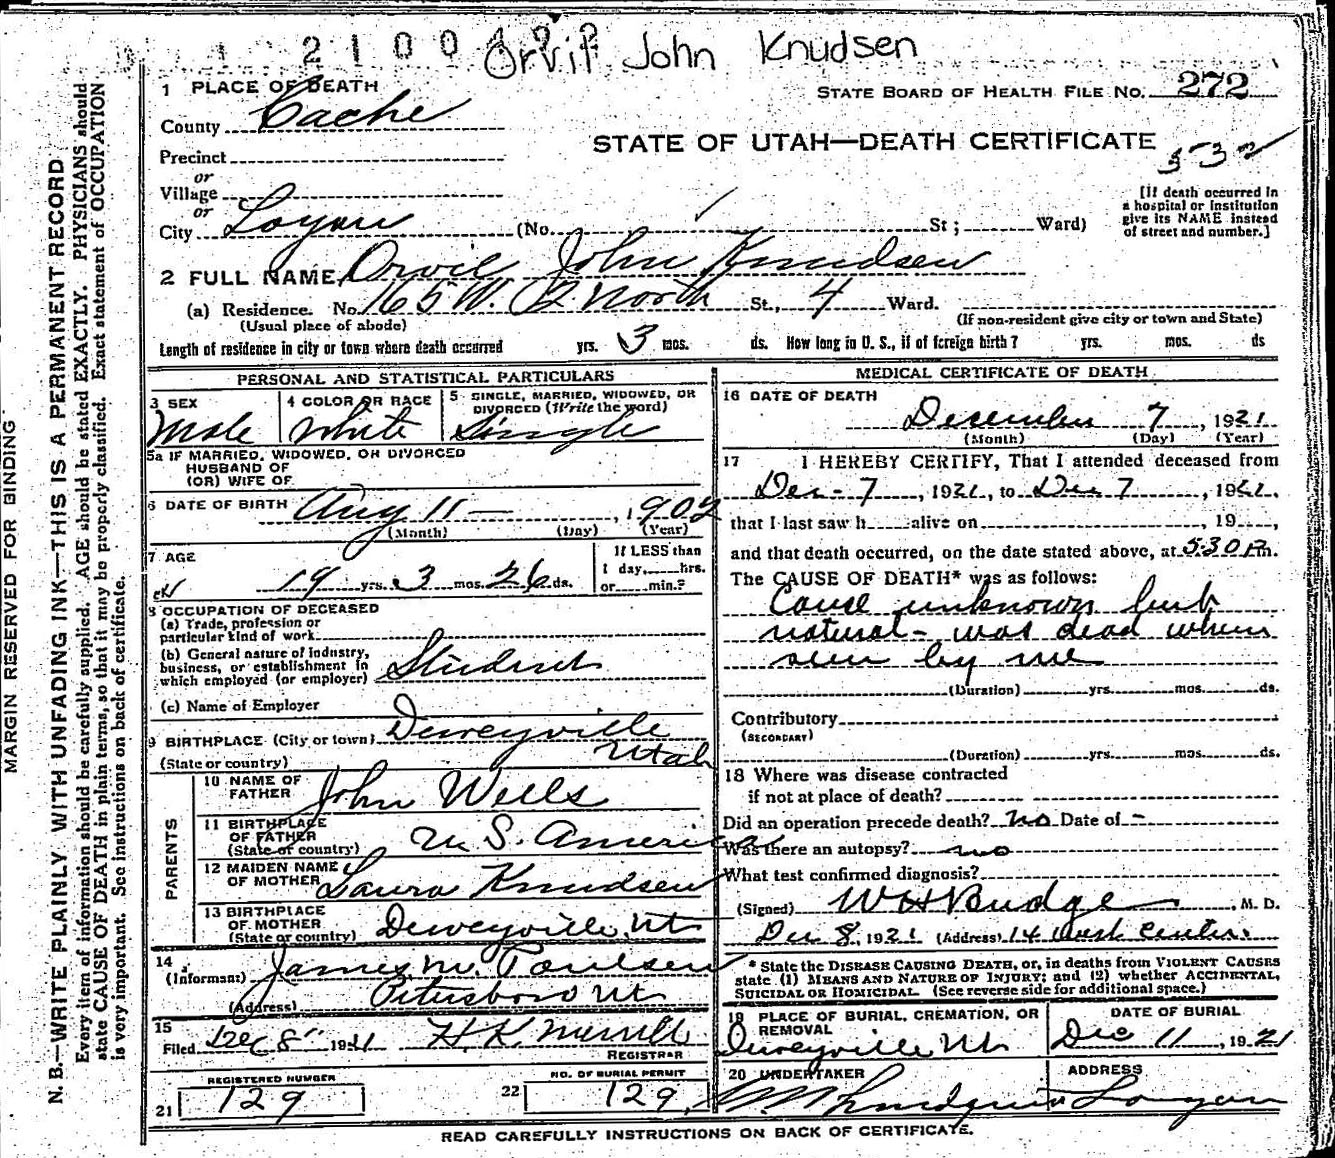 2100
Orvil John Knudsen
1 PLACE OF DEATH
STATE BOARD OF HEALTH FILE NO. 272
County Cache
STATE OF UTAH—DEATH CERTIFICATE
532
Precinct
or
Village
or
City Logan (No. St; Ward)
[If death occurred in
a hospital or institution
give its NAME instead
of street and number.]
2 FULL NAME Orvil John Knudsen
(a) Residence. No. 165 W. 2 North St., 4 Ward.
(Usual place of abode)
(If non-resident give city or town and State)
Length of residence in city or town where death occurred yrs. 3 mos. ds. How long in U. S., if of foreign birth? yrs. mos. ds
PERSONAL AND STATISTICAL PARTICULARS
3 SEX
Male
4 COLOR OR RACE
White
5 SINGLE, MARRIED, WIDOWED, OR
DIVORCED (Write the word)
Single
5a IF MARRIED, WIDOWED, OR DIVORCED
HUSBAND OF
(OR) WIFE OF
6 DATE OF BIRTH Aug 11 — , 1902
(Month) (Day) (Year)
7 AGE
19 yrs. 3 mos. 26 ds.
If LESS than
1 day, hrs.
or min.?
8 OCCUPATION OF DECEASED
(a) Trade, profession or
particular kind of work
(b) General nature of industry,
business, or establishment in
which employed (or employer) Student
(c) Name of Employer
9 BIRTHPLACE (City or town) Deweyville
(State or country) Utah
PARENTS
10 NAME OF
FATHER John Wells
11 BIRTHPLACE
OF FATHER
(State or country) U S. America
12 MAIDEN NAME
OF MOTHER Laura Knudsen
13 BIRTHPLACE
OF MOTHER
(State or country) Deweyville, Ut
14
(Informant) James M. Poulsen
(Address) Petersboro Ut
15
Filed Dec 8" 1921 H. K. Merrill
REGISTRAR
REGISTERED NUMBER
21 129
NO. OF BURIAL PERMIT
22 129
MEDICAL CERTIFICATE OF DEATH
16 DATE OF DEATH
December 7, 1921
(Month) (Day) (Year)
17 I HEREBY CERTIFY, That I attended deceased from
Dec - 7, 1921, to Dec 7, 1921,
that I last saw h alive on , 19 ,
and that death occurred, on the date stated above, at 5:30 P.m.
The CAUSE OF DEATH* was as follows:
Cause unknown but
natural - was dead when
seen by me
(Duration) yrs. mos. ds.
Contributory
(SECONDARY)
(Duration) yrs. mos. ds.
18 Where was disease contracted
if not at place of death?
Did an operation precede death? no Date of -
Was there an autopsy? no
What test confirmed diagnosis?
(Signed) W H Budge, M. D.
Dec 8, 1921 (Address) 14 West Center.
* State the DISEASE CAUSING DEATH, or, in deaths from VIOLENT CAUSES
state (1) MEANS AND NATURE OF INJURY; and (2) whether ACCIDENTAL,
SUICIDAL OR HOMICIDAL. (See reverse side for additional space.)
19 PLACE OF BURIAL, CREMATION, OR
REMOVAL
Deweyville Ut
DATE OF BURIAL
Dec 11, 1921
20 UNDERTAKER
ADDRESS
Logan
READ CAREFULLY INSTRUCTIONS ON BACK OF CERTIFICATE.
MARGIN RESERVED FOR BINDING
N. B.—WRITE PLAINLY WITH UNFADING INK—THIS IS A PERMANENT RECORD
Every item of information should be carefully supplied. AGE should be stated EXACTLY. PHYSICIANS should
state CAUSE OF DEATH in plain terms, so that it may be properly classified. Exact statement of OCCUPATION
is very important. See instructions on back of certificate.